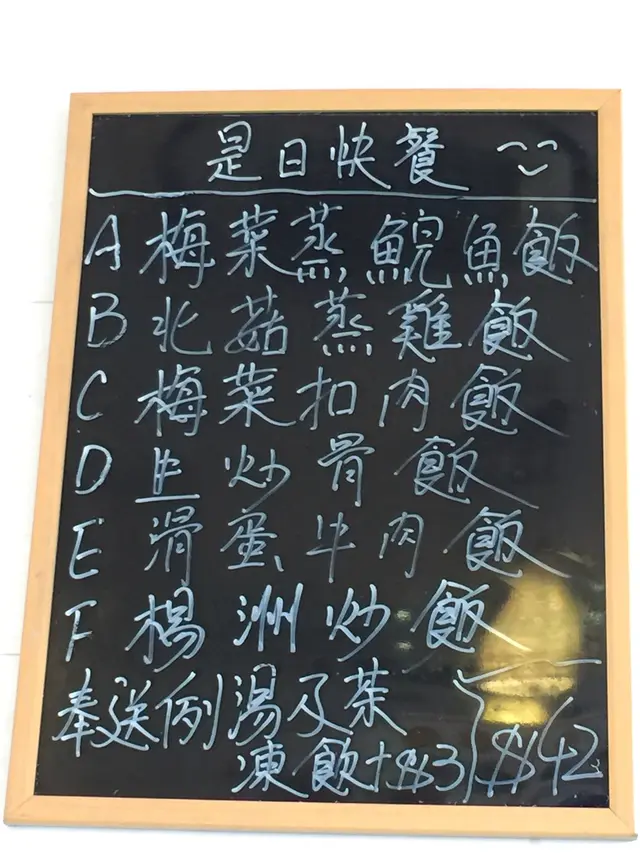 是日快餐
A 梅菜蒸鯇魚飯
B 北菇蒸雞飯
C 梅菜扣肉飯
D 生炒骨飯
E 滑蛋牛肉飯
F 楊洲炒飯
奉送例湯及茶
凍飲+$3 $42